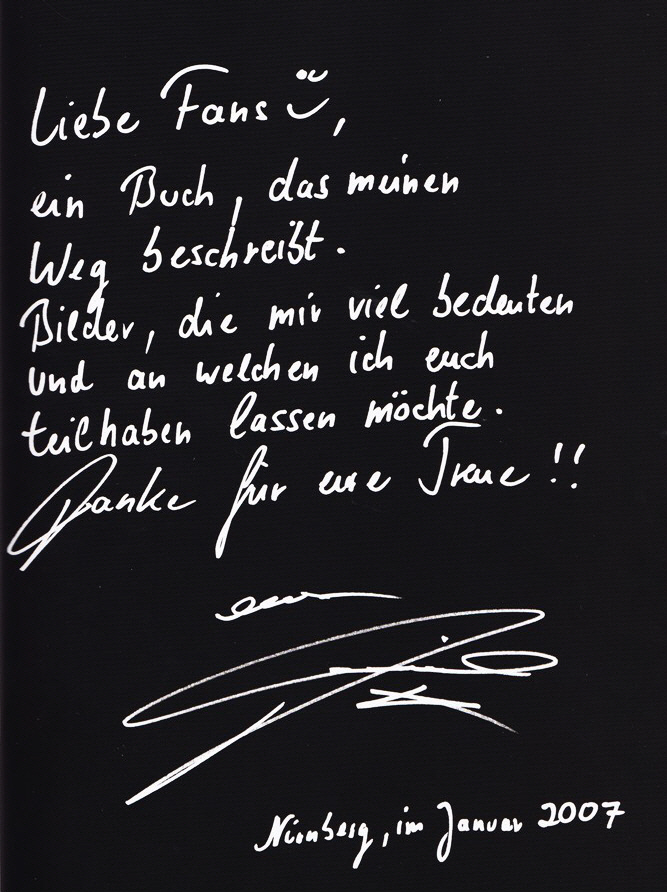 Liebe Fans ,
ein Buch, das meinen
Weg beschreibt.
Bilder, die mir viel bedeuten
und an welchen ich euch
teilhaben lassen möchte.
Danke für eure Treue!!
euer
Nürnberg, im Januar 2007